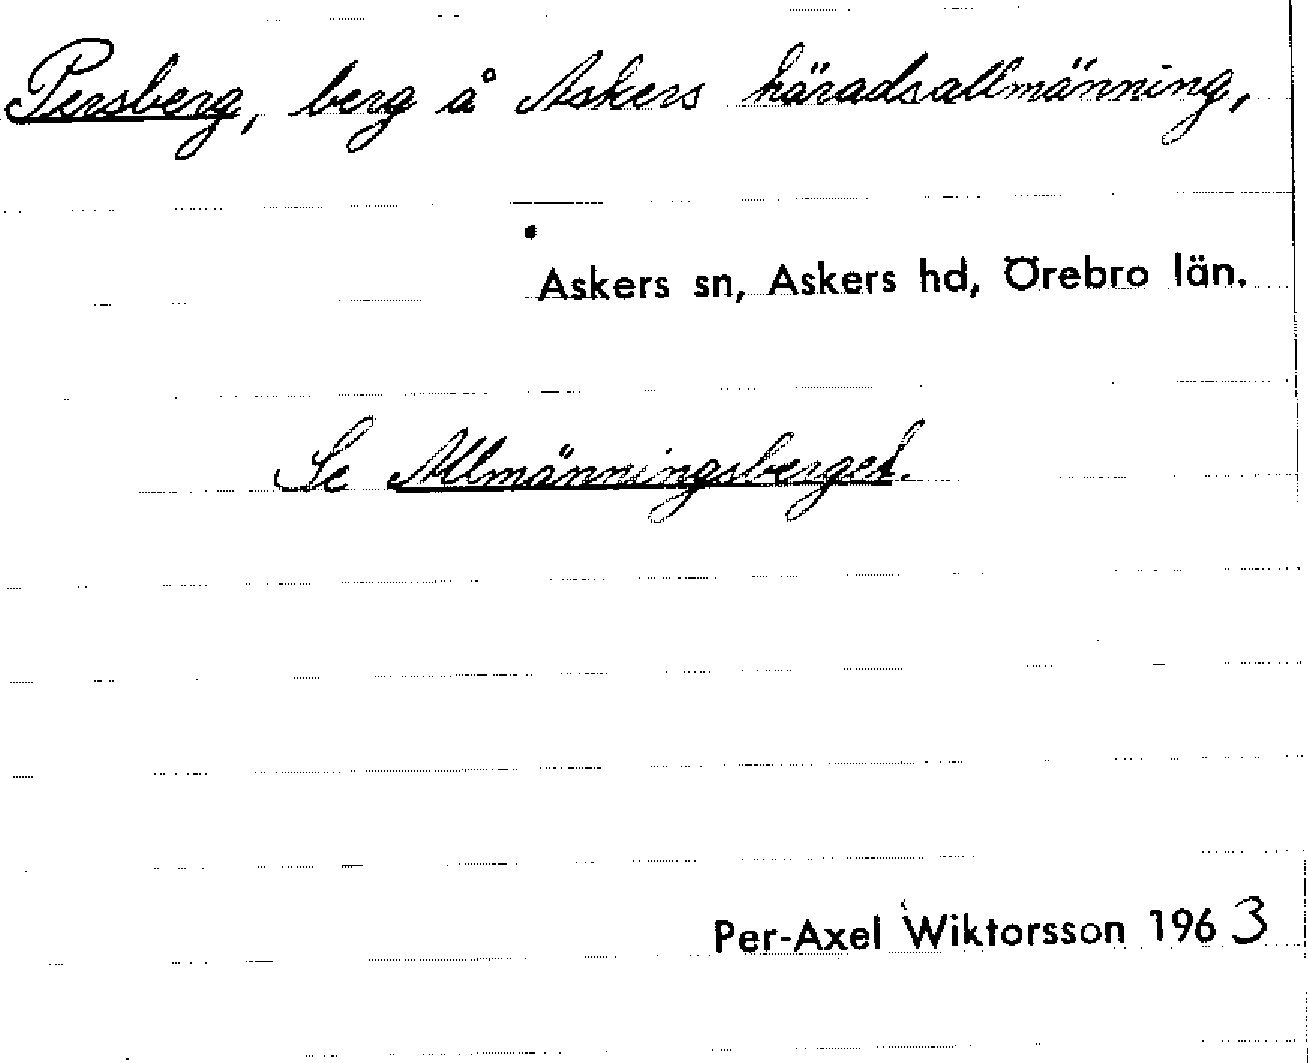 Persberg, berg å Askers häradsallmänning,
Askers sn, Askers hd, Örebro län.
Se Allmänningsberget.
Per-Axel Wiktorsson 1963